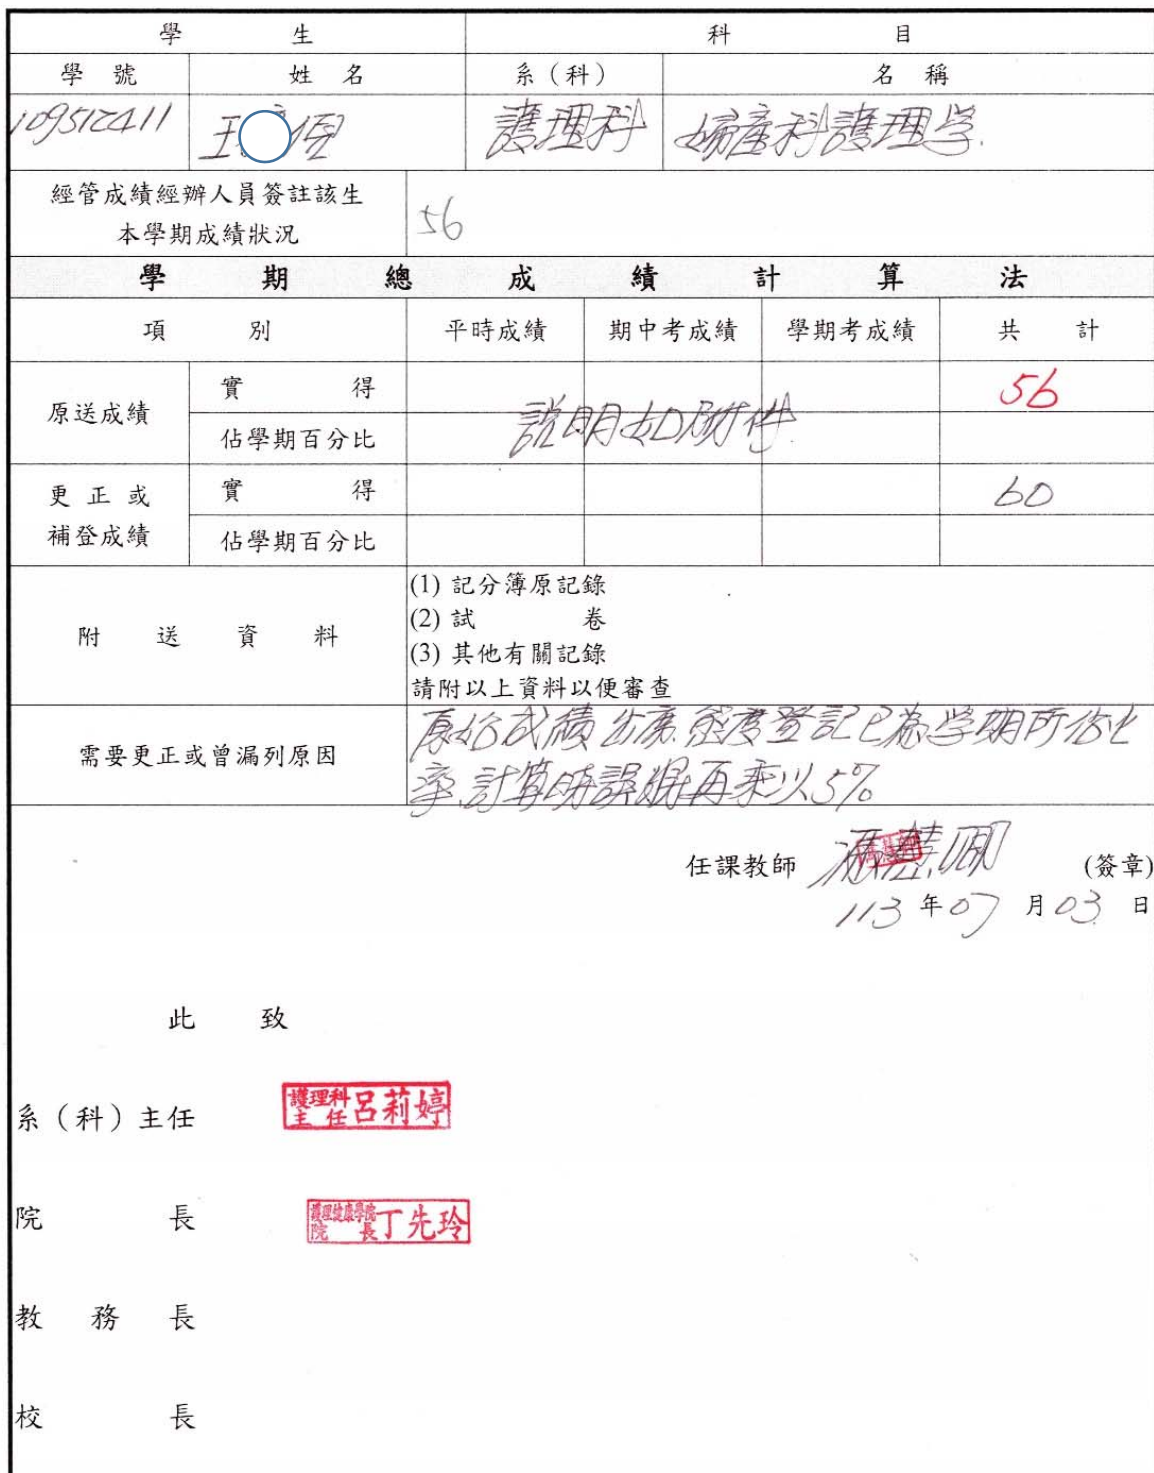 學 生 科 目
學 號 姓 名 系(科) 名 稱
109512411 王 恆 護理科 婦產科護理学.
經管成績經辦人員簽註該生
本學期成績狀況
56
學 期 總 成 績 計 算 法
項 別 平時成績 期中考成績 學期考成績 共 計
原送成績
實 得 56
佔學期百分比
說明如附件
更 正 或
補登成績
實 得 60
佔學期百分比
附 送 資 料
(1) 記分簿原記錄
(2) 試 卷
(3) 其他有關記錄
請附以上資料以便審查
需要更正或曾漏列原因
原始成績出席.態度登記已為学期所佔比
率.計算時誤將再乘以5%
任課教師 馮慧卿 (簽章)
113 年 07 月 03 日
此 致
系(科)主任 護理科主任 呂莉婷
院 長 護理健康學院院長 丁先玲
教 務 長
校 長